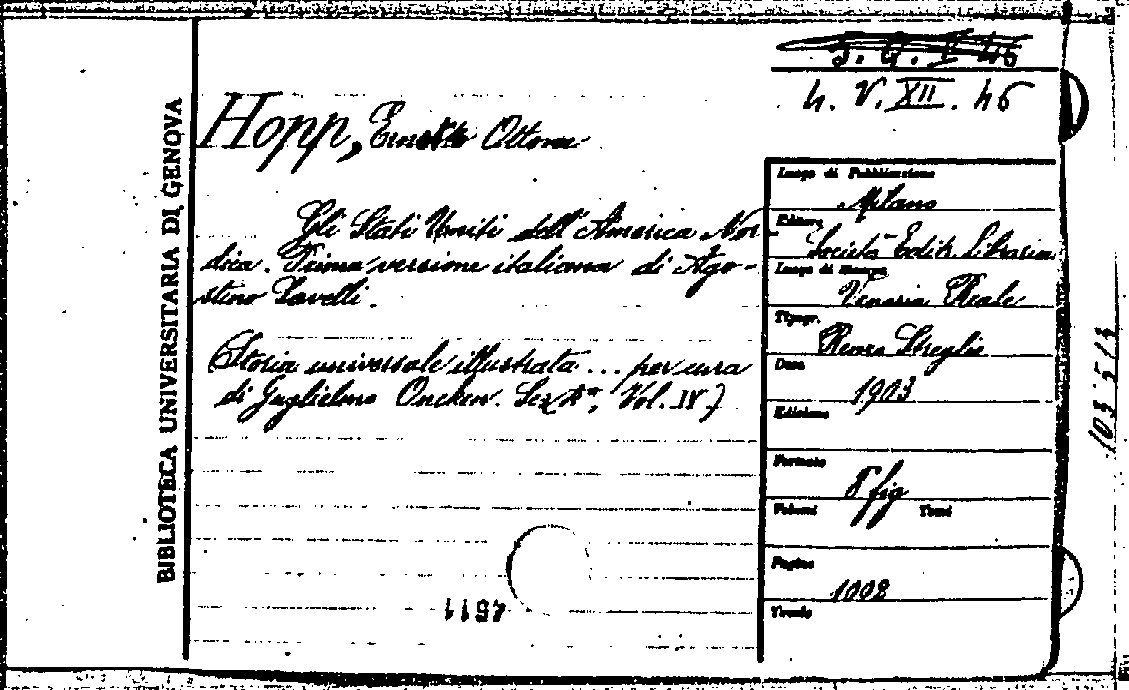 BIBLIOTECA UNIVERSITARIA DI GENOVA
4. V. XII. 46
Hopp, Ernesto Ottone
Gli Stati Uniti dell'America Nor-
dica. Prima versione italiana di Ago-
stino Savelli.
(Storia universale illustrata ... per cura
di Guglielmo Oncken. Sez. 4ª, Vol. IV)
Luogo di Pubblicazione
Milano
Editore
Società Edit. Libraria
Luogo di Stampa
Venaria Reale
Tipogr.
Renzo Streglio
Data
1903
Edizione
Formato
8° fig
Volumi Tomi
Pagine
1008
Tavole
103513